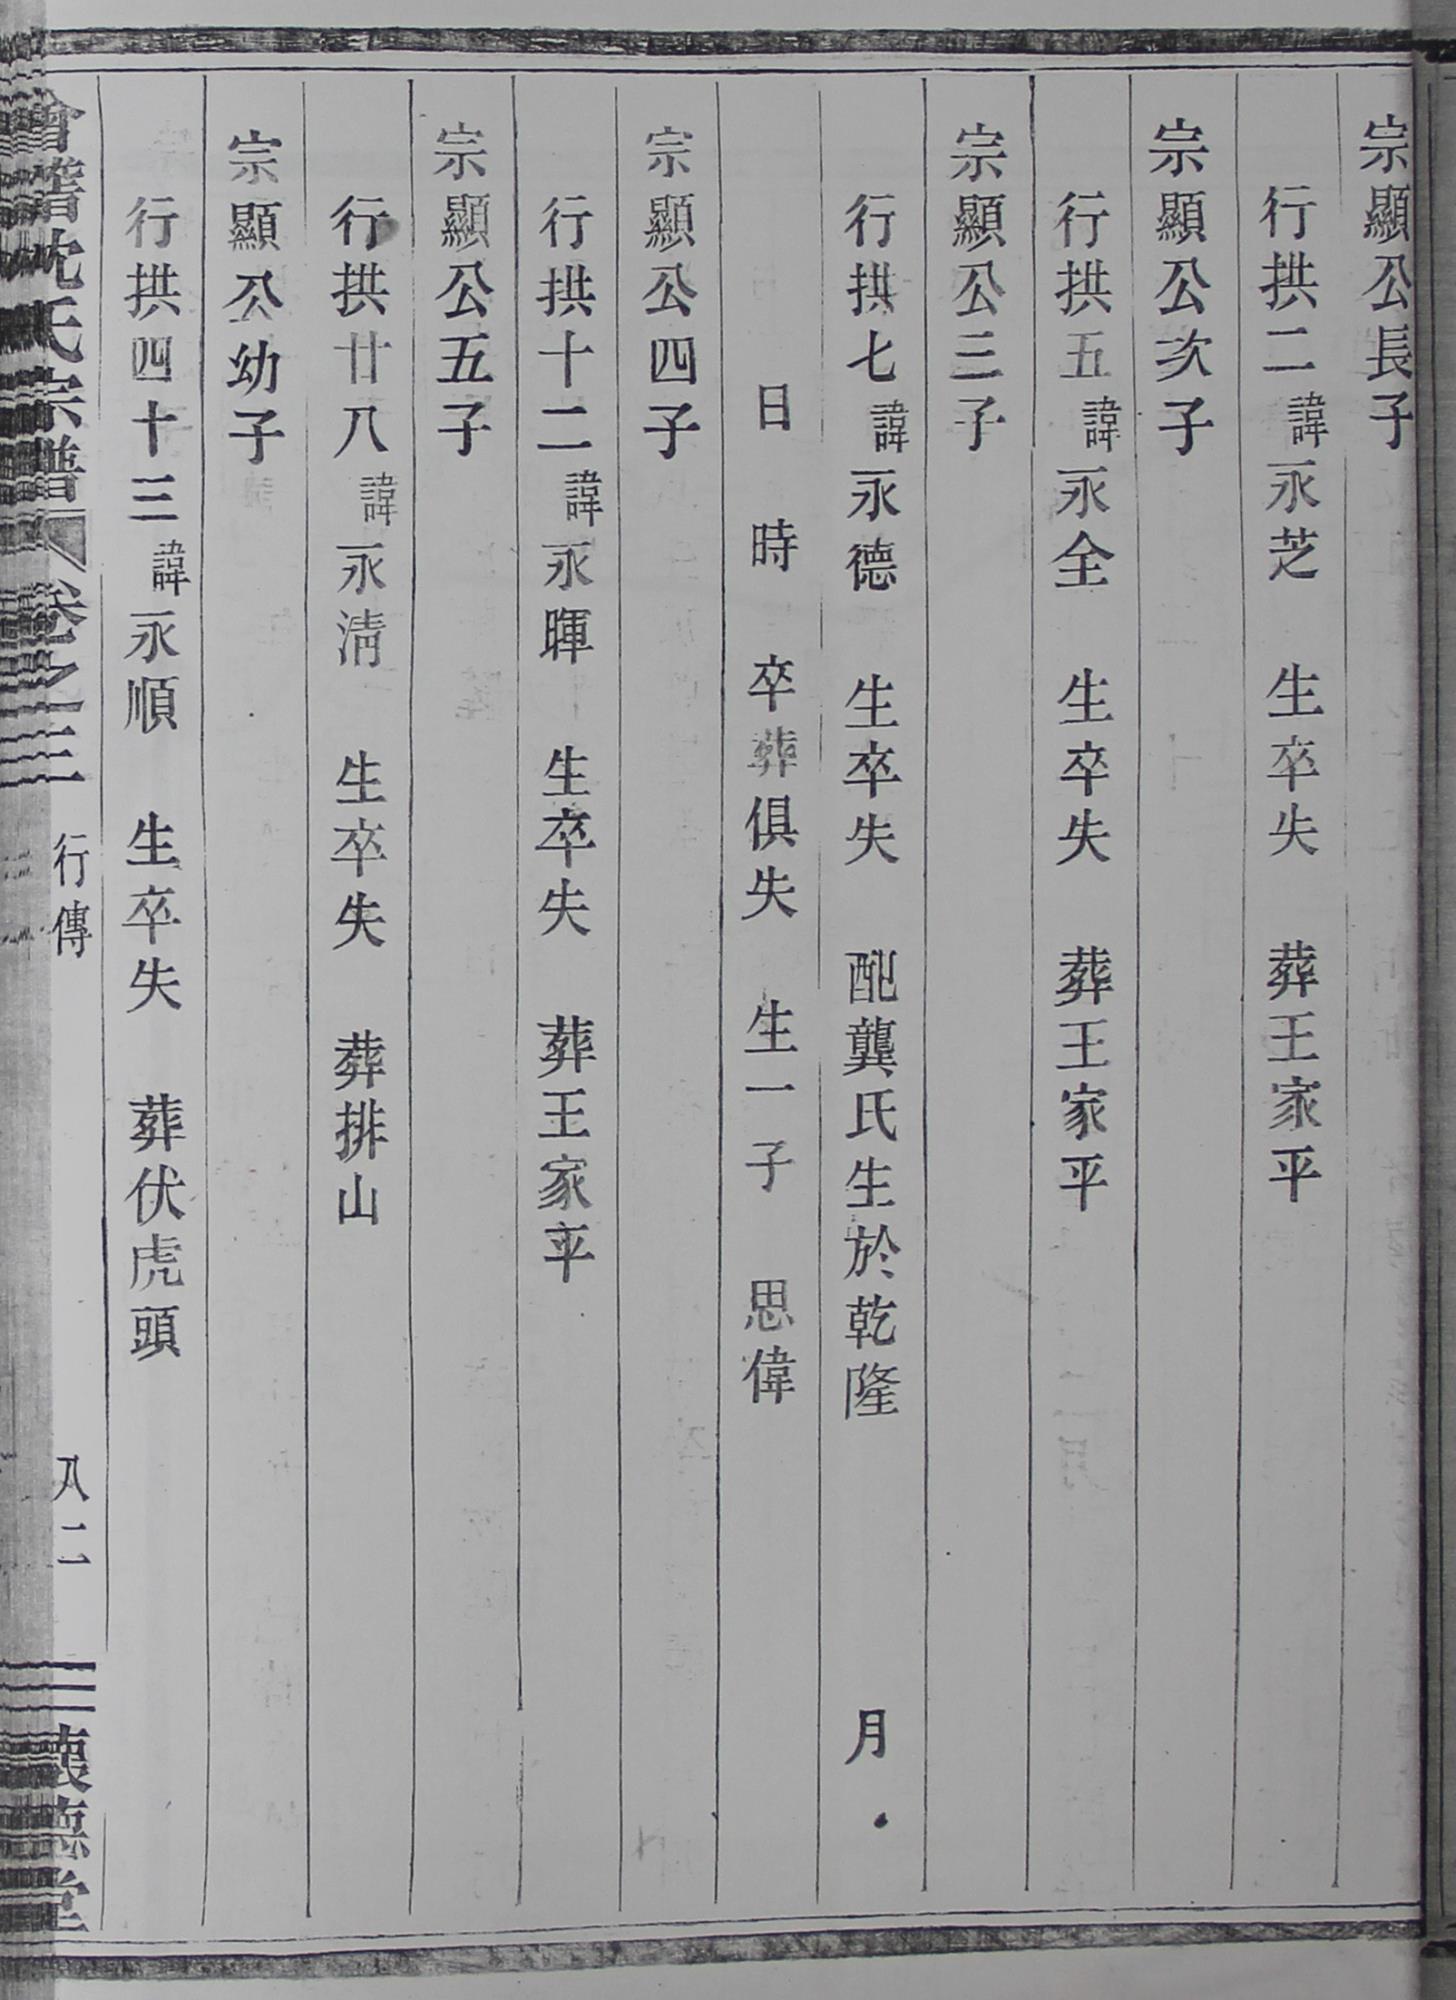 宗顯公長子
行拱二諱永芝　生卒失　葬王家平
宗顯公次子
行拱五諱永全　生卒失　葬王家平
宗顯公三子
行拱七諱永德　生卒失　配龔氏生於乾隆　月
日　時　卒葬俱失　生一子　思偉
宗顯公四子
行拱十二諱永暉　生卒失　葬王家平
宗顯公五子
行拱廿八諱永淸　生卒失　葬排山
宗顯公幼子
行拱四十三諱永順　生卒失　葬伏虎頭
會稽沈氏宗譜　卷之三　行傳　八二　懷德堂